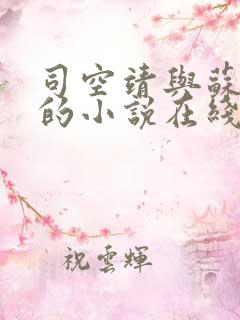 司空靖與蘇
的小說在綫
祝雲輝